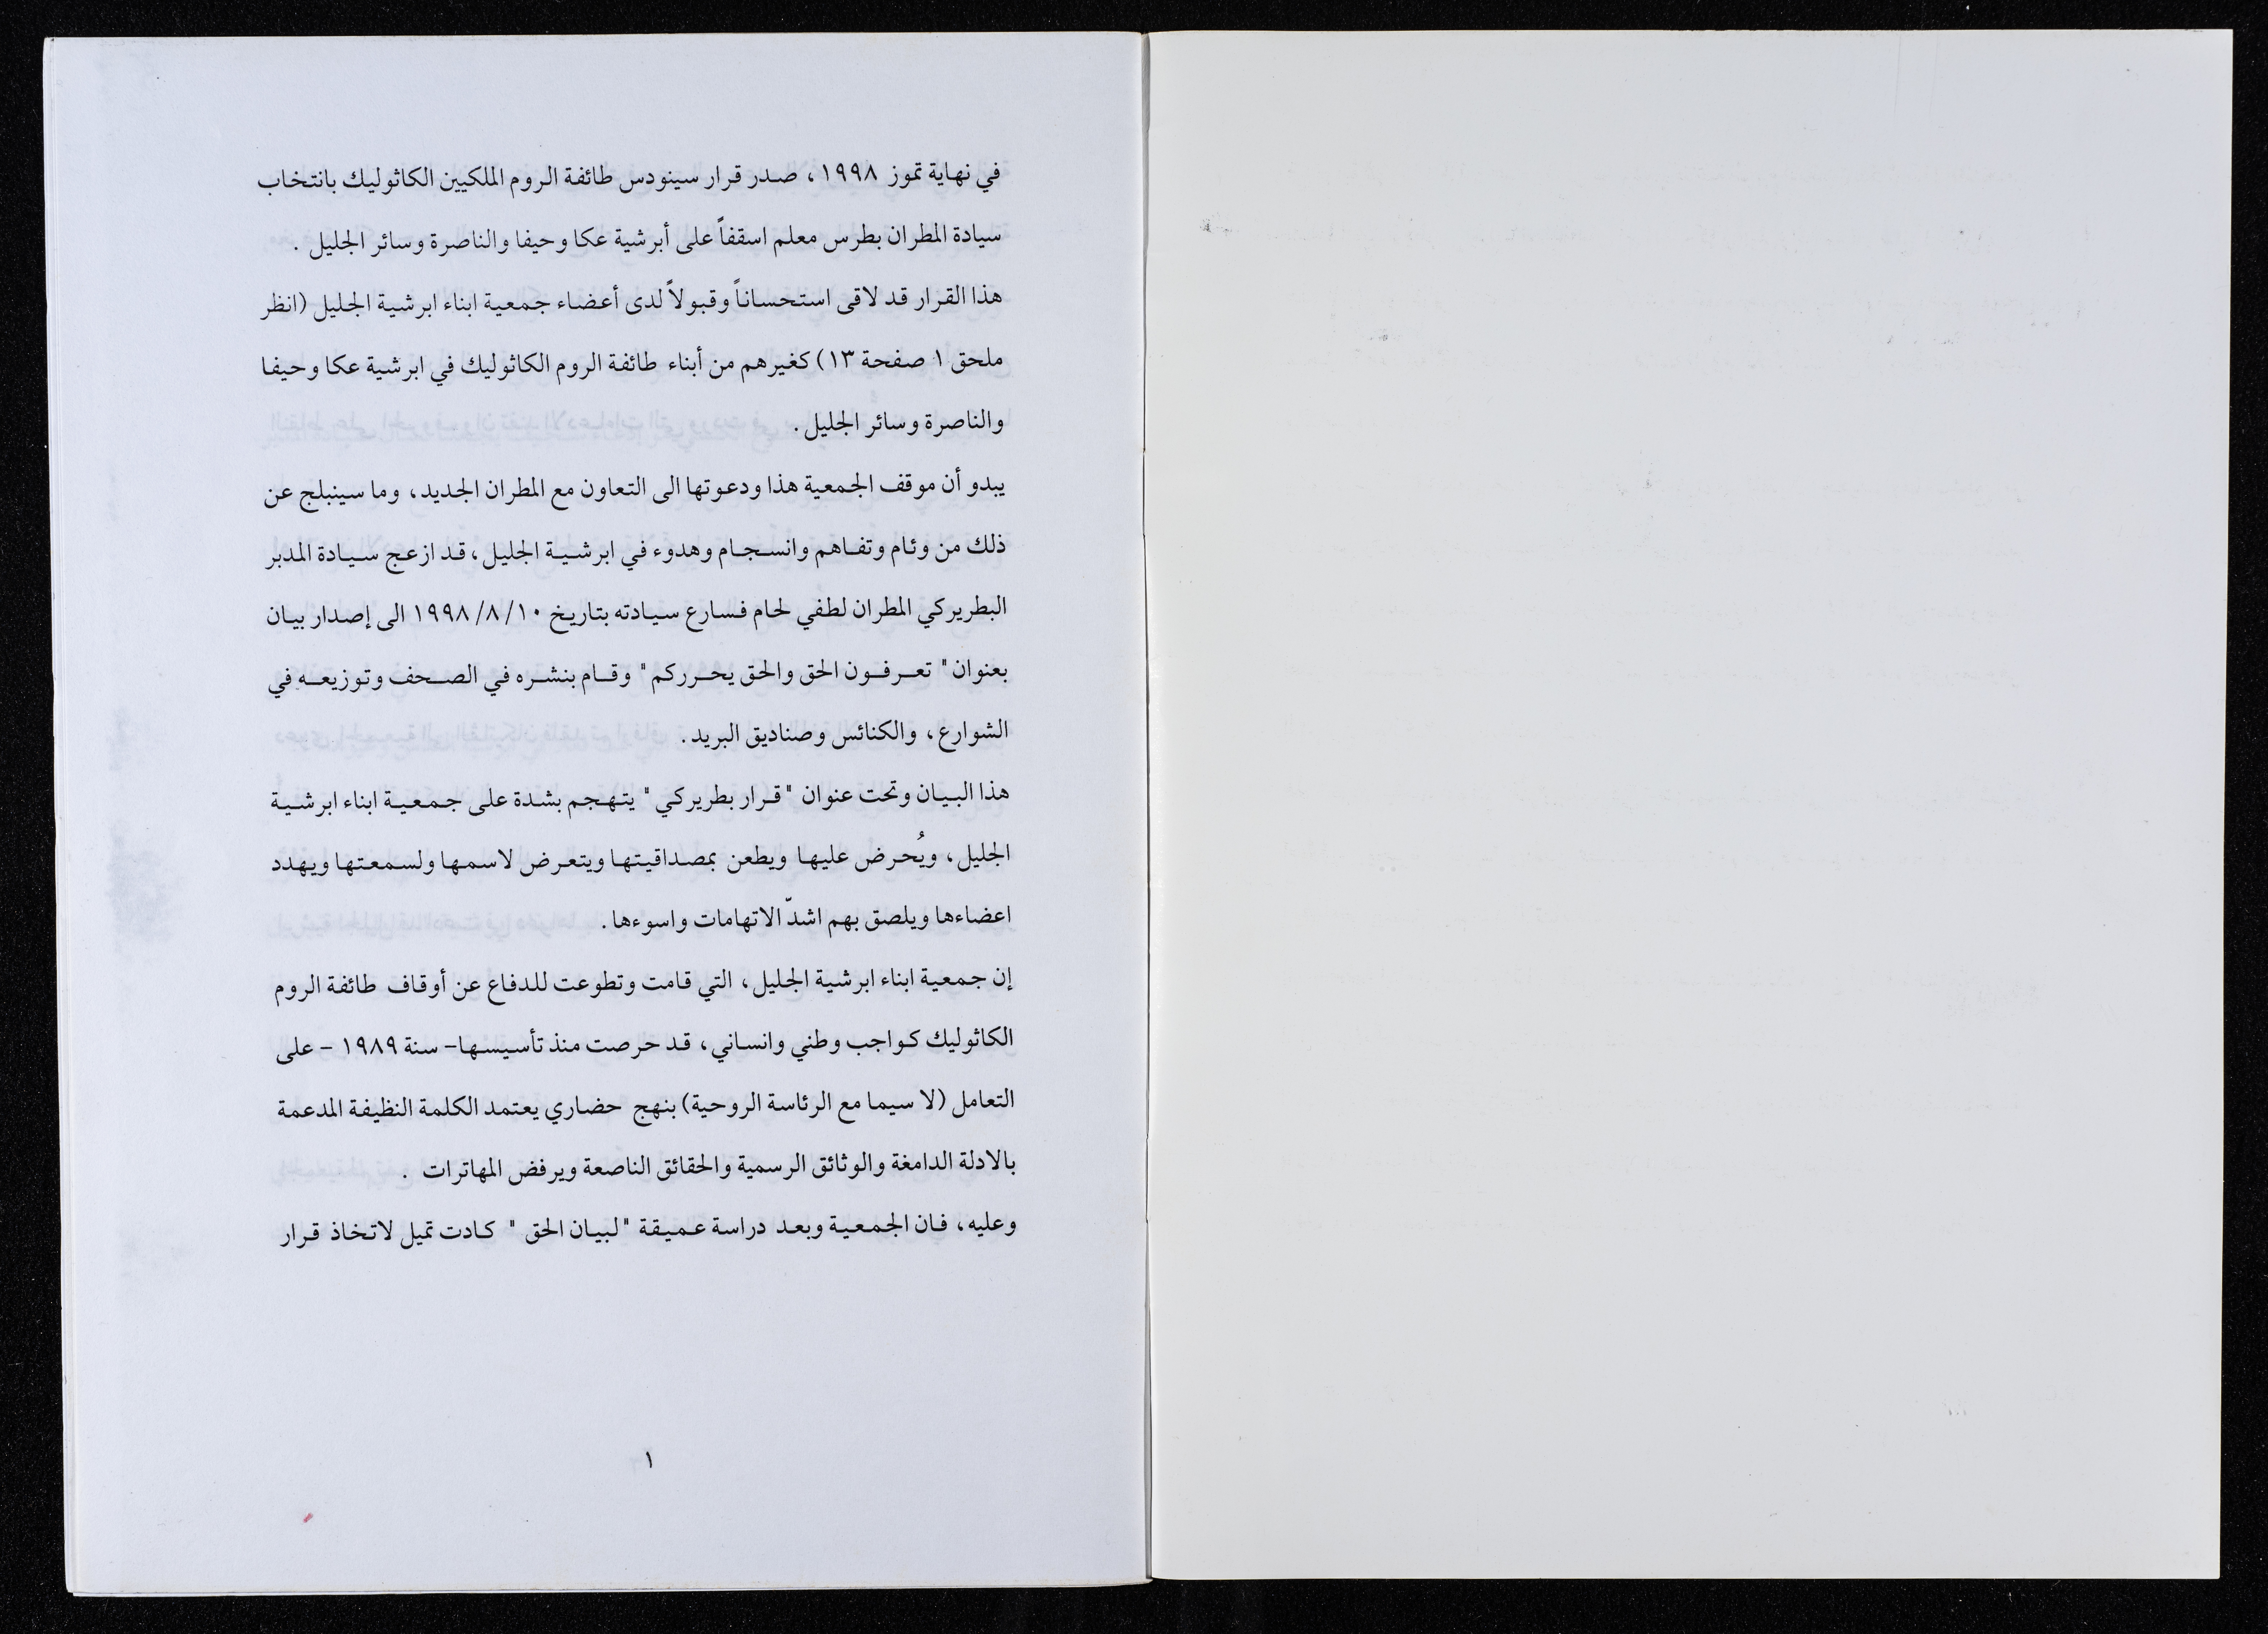 في نهاية تموز ١٩٩٨، صدر قرار سينودس طائفة الروم الملكيين الكاثوليك بانتخاب
سيادة المطران بطرس معلم اسقفاً على أبرشية عكا وحيفا والناصرة وسائر الجليل .
هذا القرار قد لاقى استحساناً وقبولاً لدى أعضاء جمعية ابناء ابرشية الجليل (انظر
ملحق ١ صفحة ١٣) كغيرهم من أبناء طائفة الروم الكاثوليك في ابرشية عكا وحيفا
والناصرة وسائر الجليل.
يبدو أن موقف الجمعية هذا ودعوتها الى التعاون مع المطران الجديد، وما سينبلج عن
ذلك من وئام وتفاهم وانسجام وهدوء في ابرشية الجليل، قد ازعج سيادة المدبر
البطريركي المطران لطفي لحام فسارع سيادته بتاريخ ١٩٩٨/٨/١٠ الى إصدار بيان
بعنوان " تعرفون الحق والحق يحرركم " وقام بنشره في الصحف وتوزيعه في
الشوارع، والكنائس وصناديق البريد.
هذا البيان وتحت عنوان "قرار بطريركي" يتهجم بشدة على جمعية ابناء ابرشية
الجليل، ويُحرض عليها ويطعن بمصداقيتها ويتعرض لاسمها ولسمعتها ويهدد
اعضاءها ويلصق بهم اشدّ الاتهامات واسوءها.
إن جمعية ابناء ابرشية الجليل، التي قامت وتطوعت للدفاع عن أوقاف طائفة الروم
الكاثوليك كواجب وطني وانساني، قد حرصت منذ تأسيسها- سنة ١٩٨٩ - على
التعامل (لا سيما مع الرئاسة الروحية) بنهج حضاري يعتمد الكلمة النظيفة المدعمة
بالادلة الدامغة والوثائق الرسمية والحقائق الناصعة ويرفض المهاترات .
وعليه، فان الجمعية وبعد دراسة عميقة "لبيان الحق " كادت تميل لاتخاذ قرار
١